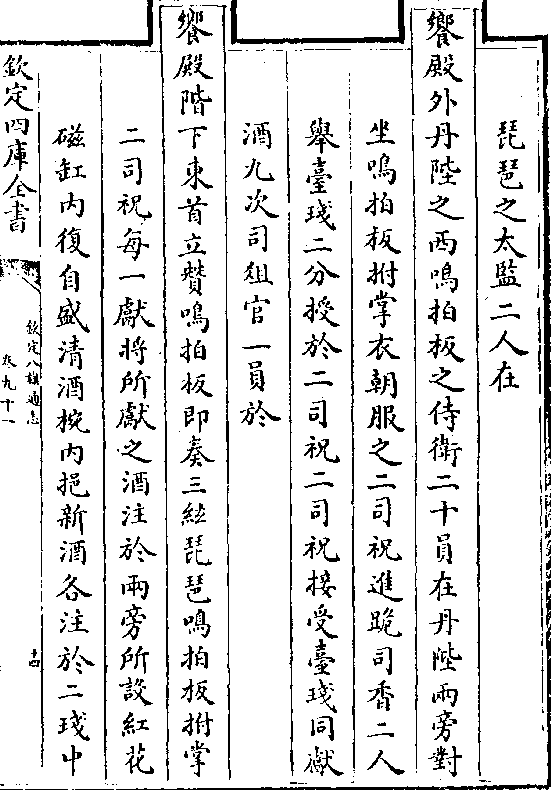 琵琶之太監二人在
饗殿外丹陛之西鳴拍板之侍衛二十員在丹陛兩旁對
坐鳴拍板拊掌衣朝服之二司祝進跪司香二人
舉臺琖二分授於二司祝二司祝接受臺琖同獻
酒九次司俎官一員於
饗殿階下東首立贊鳴拍板即奏三絃琵琶鳴拍板拊掌
二司祝每一獻將所獻之酒注於兩旁所設紅花
磁缸內復自盛清酒椀內挹新酒各注於二琖中
欽定四庫全書
欽定八旗通志
卷九十一
十四